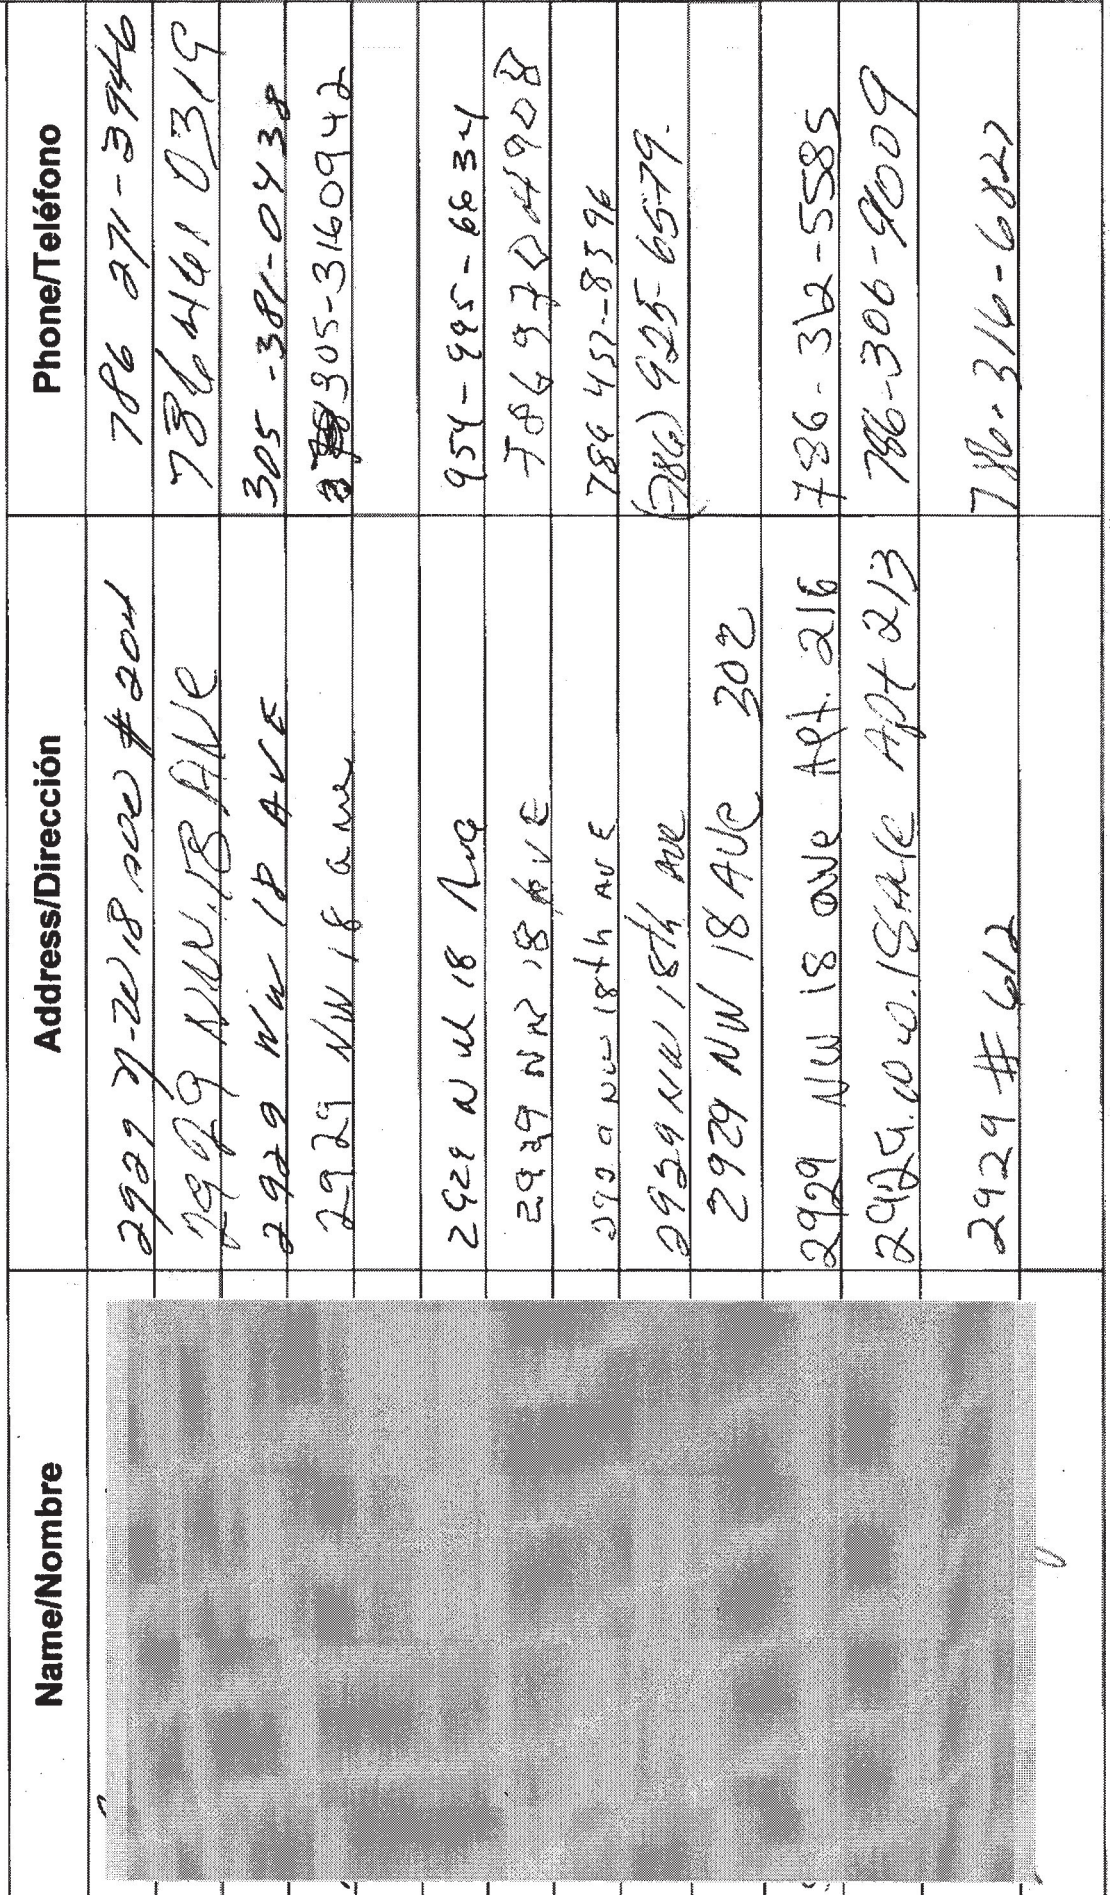 Name/Nombre Address/Dirección Phone/Teléfono
2929 N-W 18 ave # 204 786 271-3946
2929 N.W. 18 AVE 786 461 0319
2929 NW 18 AVE 305-381-0438
2929 NW 18 ave 305-3160942
2929 NW 18 Ave 954-995-6634
2929 NW 18 AVE 7869704908
2929 NW 18th AVE 786 457-8396
2929 NW 18th AVE (786) 925-6579.
2929 NW 18 AVE 302
2929 NW 18 ave Apt. 216 786-312-5585
2929.w.18 ave Apt 213 786-306-9009
2929 # 612 786.316-6827